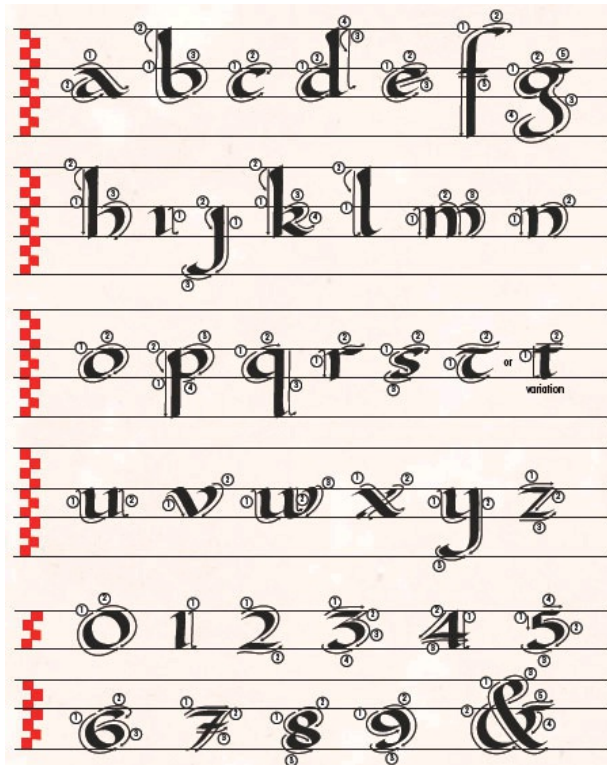 a b c d e f g
h ı ȷ k l m n
o p q r s t or t
variation
u v w x y z
0 1 2 3 4 5
6 7 8 9 &